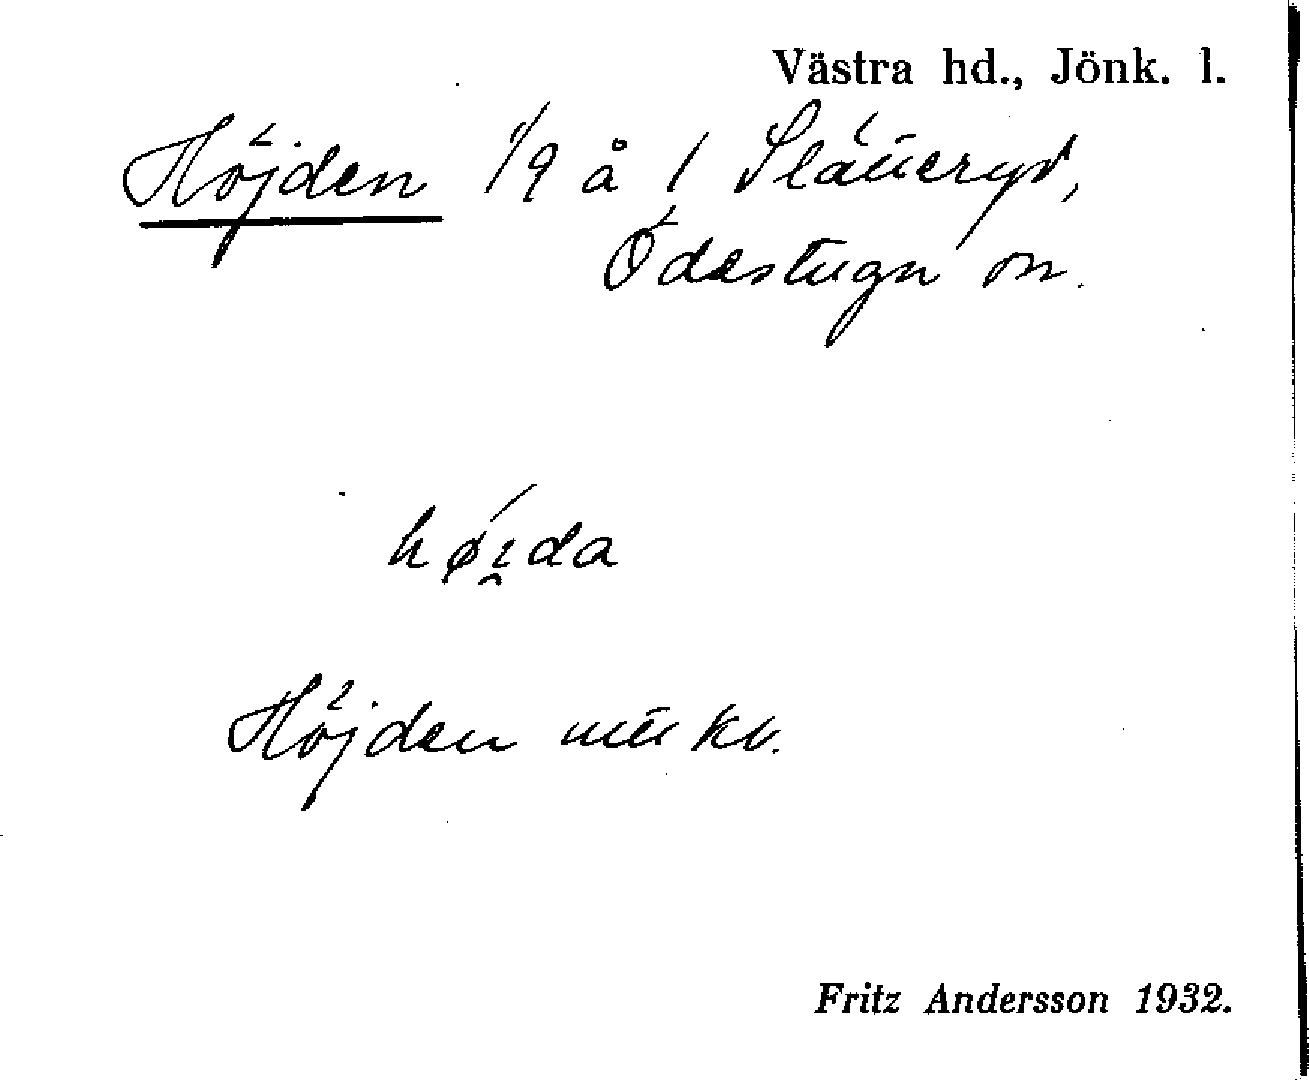 Västra hd., Jönk. l.
Höjden 1/9 å 1 Slätteryd,
Ödestugu sn.
hø̯ída
Höjden mtl kv.
Fritz Andersson 1932.